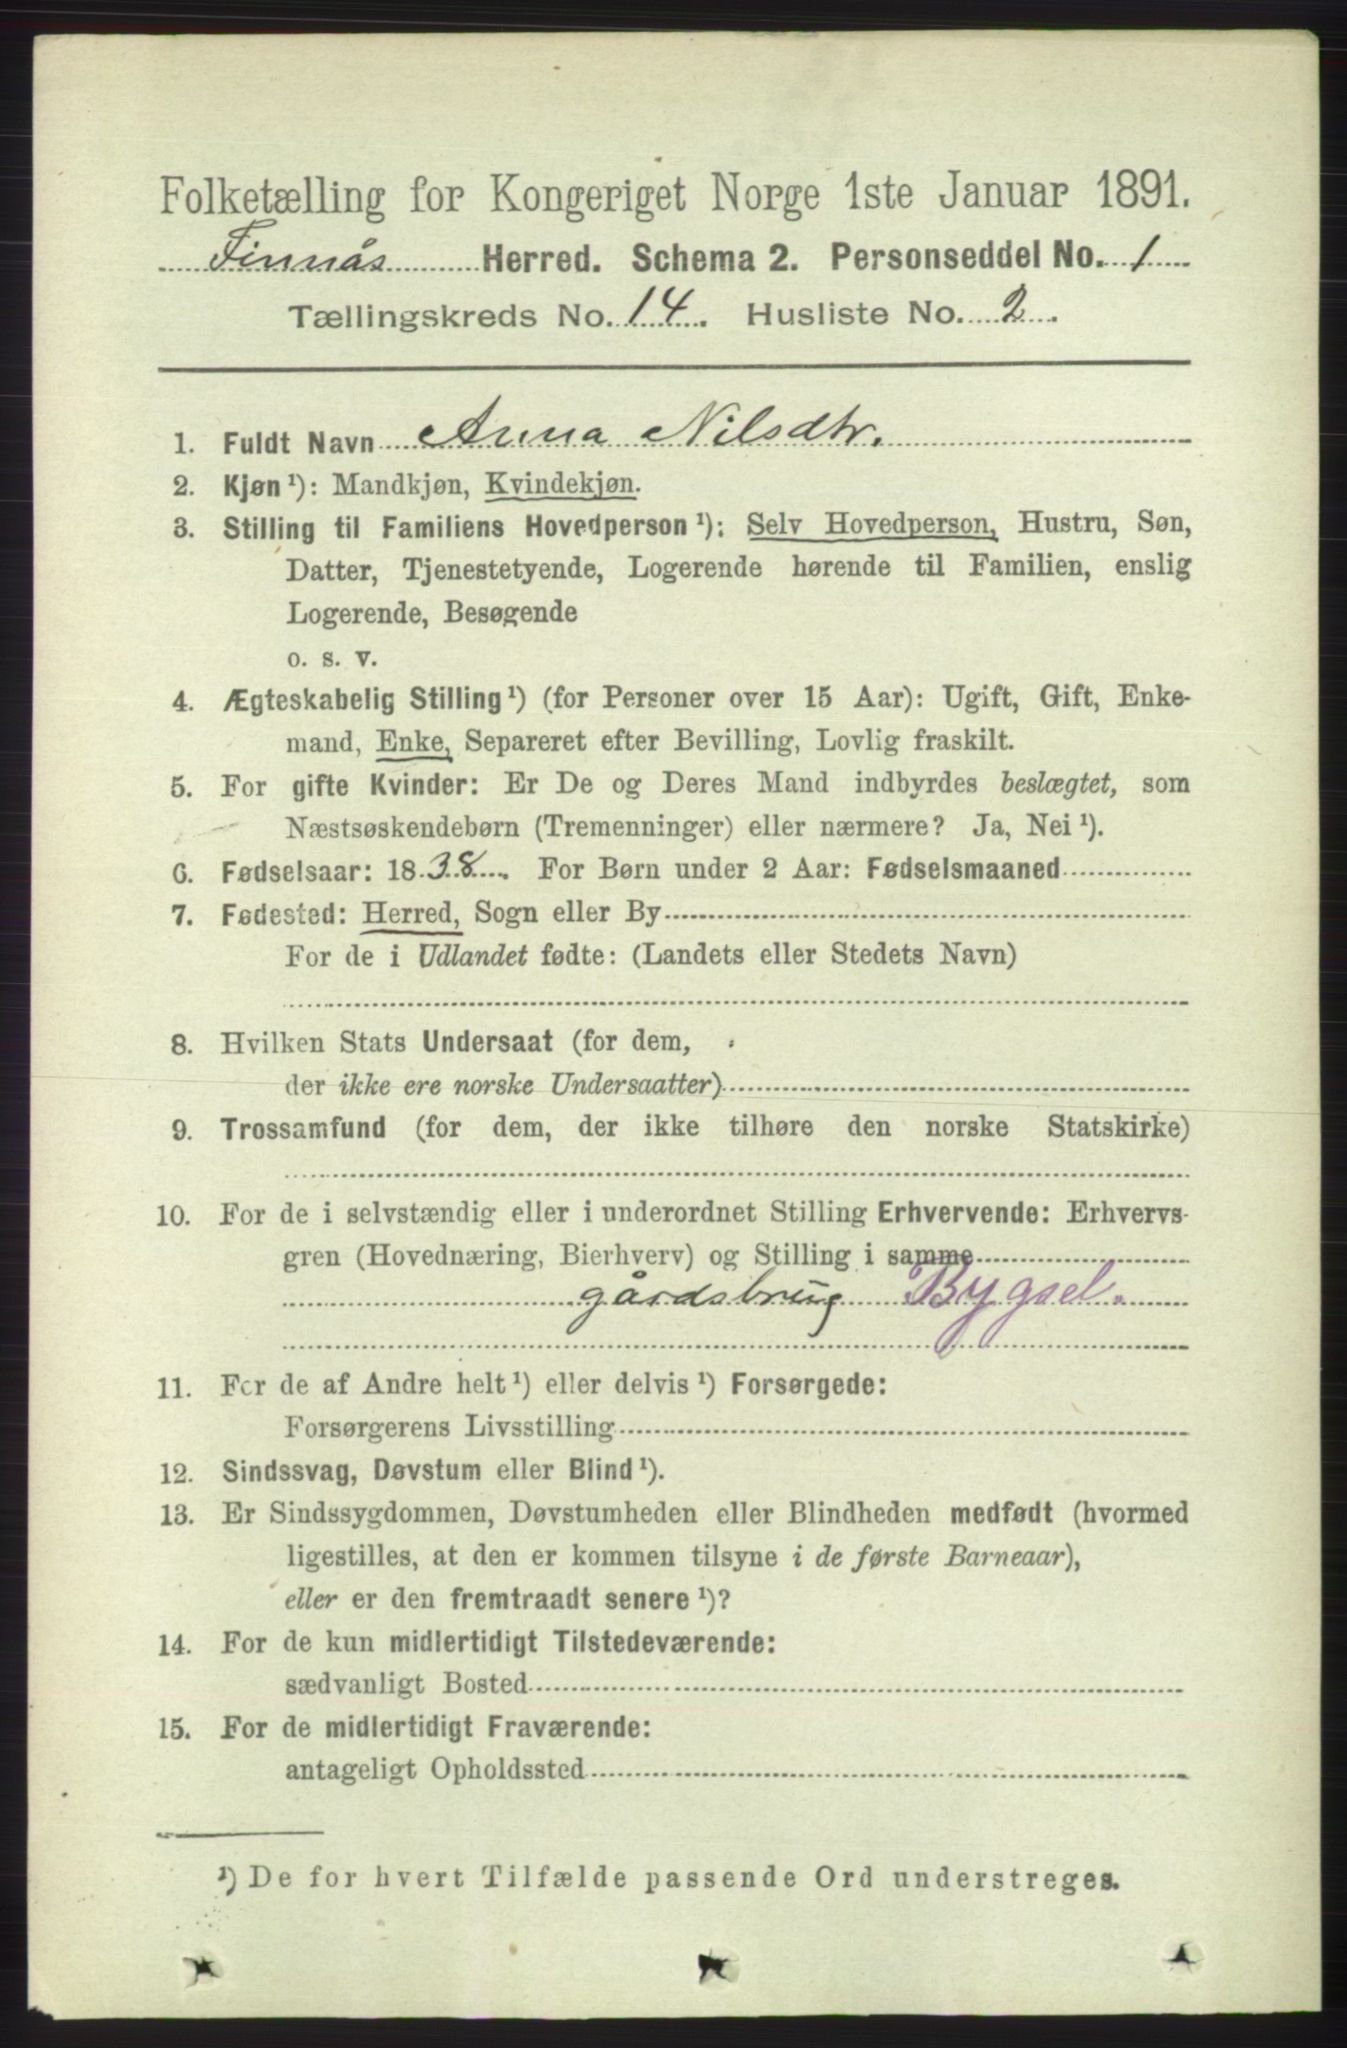 Folketælling for Kongeriget Norge 1ste Januar 1891.
Finnås Herred. Schema 2. Personseddel No. 1
Tællingskreds No. 14. Husliste No. 2.
1. Fuldt Navn Anna Nilsdtr.
2. Kjøn ¹): Mandkjøn, Kvindekjøn.
3. Stilling til Familiens Hovedperson ¹): Selv Hovedperson, Hustru, Søn,
Datter, Tjenestetyende, Logerende hørende til Familien, enslig
Logerende, Besøgende
o. s. v.
4. Ægteskabelig Stilling ¹) (for Personer over 15 Aar): Ugift, Gift, Enke-
mand, Enke, Separeret efter Bevilling, Lovlig fraskilt.
5. For gifte Kvinder: Er De og Deres Mand indbyrdes beslægtet, som
Næstsøskendebørn (Tremenninger) eller nærmere? Ja, Nei ¹).
6. Fødselsaar: 1838. For Børn under 2 Aar: Fødselsmaaned
7. Fødested: Herred, Sogn eller By
For de i Udlandet fødte: (Landets eller Stedets Navn)
8. Hvilken Stats Undersaat (for dem,
der ikke ere norske Undersaatter)
9. Trossamfund (for dem, der ikke tilhøre den norske Statskirke)
10. For de i selvstændig eller i underordnet Stilling Erhvervende: Erhvervs-
gren (Hovednæring, Bierhverv) og Stilling i samme
gårdsbrug Bygsel.
11. For de af Andre helt ¹) eller delvis ¹) Forsørgede:
Forsørgerens Livsstilling
12. Sindssvag, Døvstum eller Blind ¹).
13. Er Sindssygdommen, Døvstumheden eller Blindheden medfødt (hvormed
ligestilles, at den er kommen tilsyne i de første Barneaar),
eller er den fremtraadt senere ¹)?
14. For de kun midlertidigt Tilstedeværende:
sædvanligt Bosted
15. For de midlertidigt Fraværende:
antageligt Opholdssted
¹) De for hvert Tilfælde passende Ord understreges.